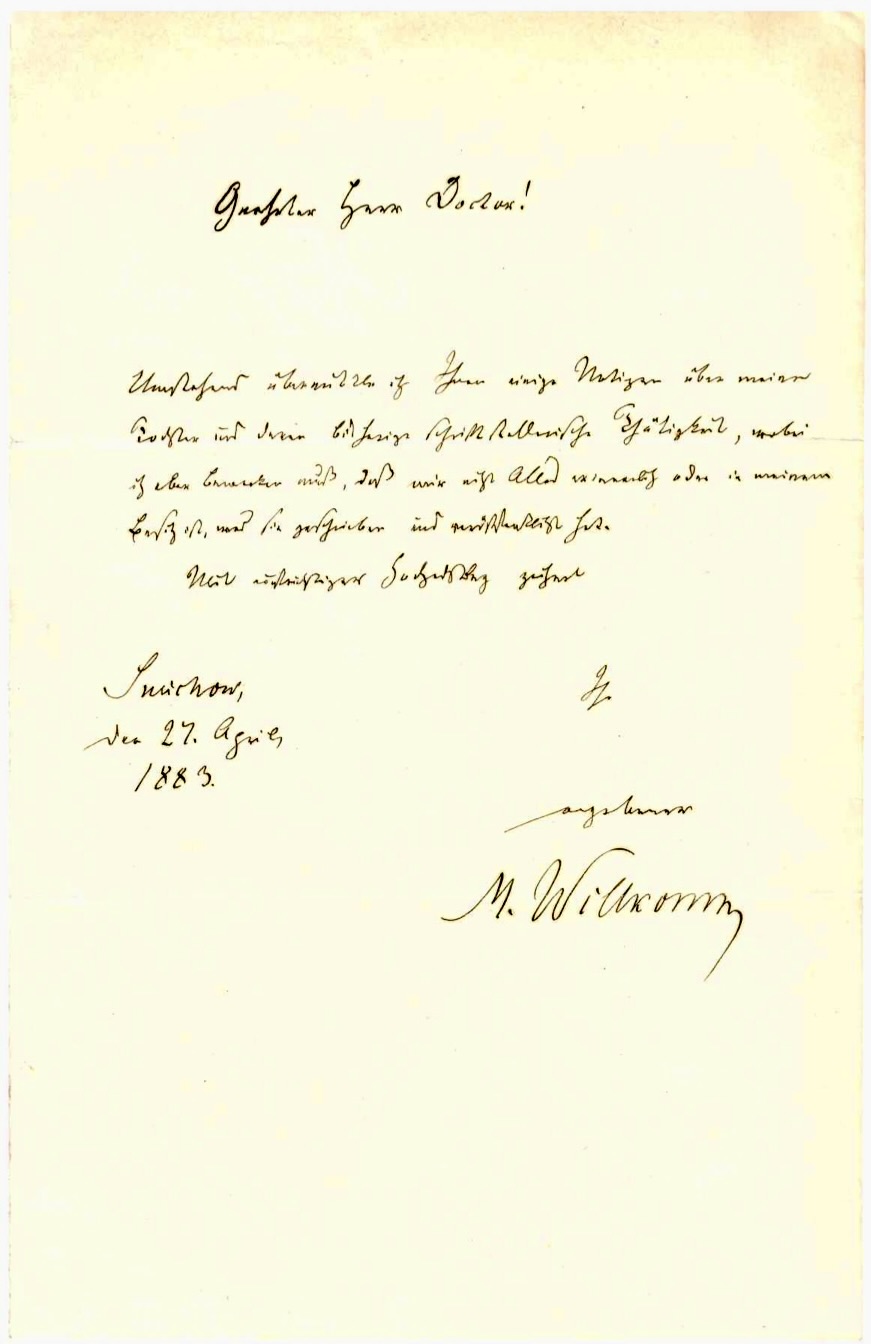 Geehrter Herr Doctor!
Umstehend übermittle ich Ihnen einige Notizen über meine
Tochter und deren bisherige schriftstellerische Thätigkeit, wobei
ich aber bemerken muß, daß mir nicht Alles erinnerlich oder in meinem
Besitz ist, was sie geschrieben und veröffentlicht hat.
Mit aufrichtiger Hochachtung zeichnet
Smichow,
Ihr
den 27. April
1883.
ergebener
M. Willkomm